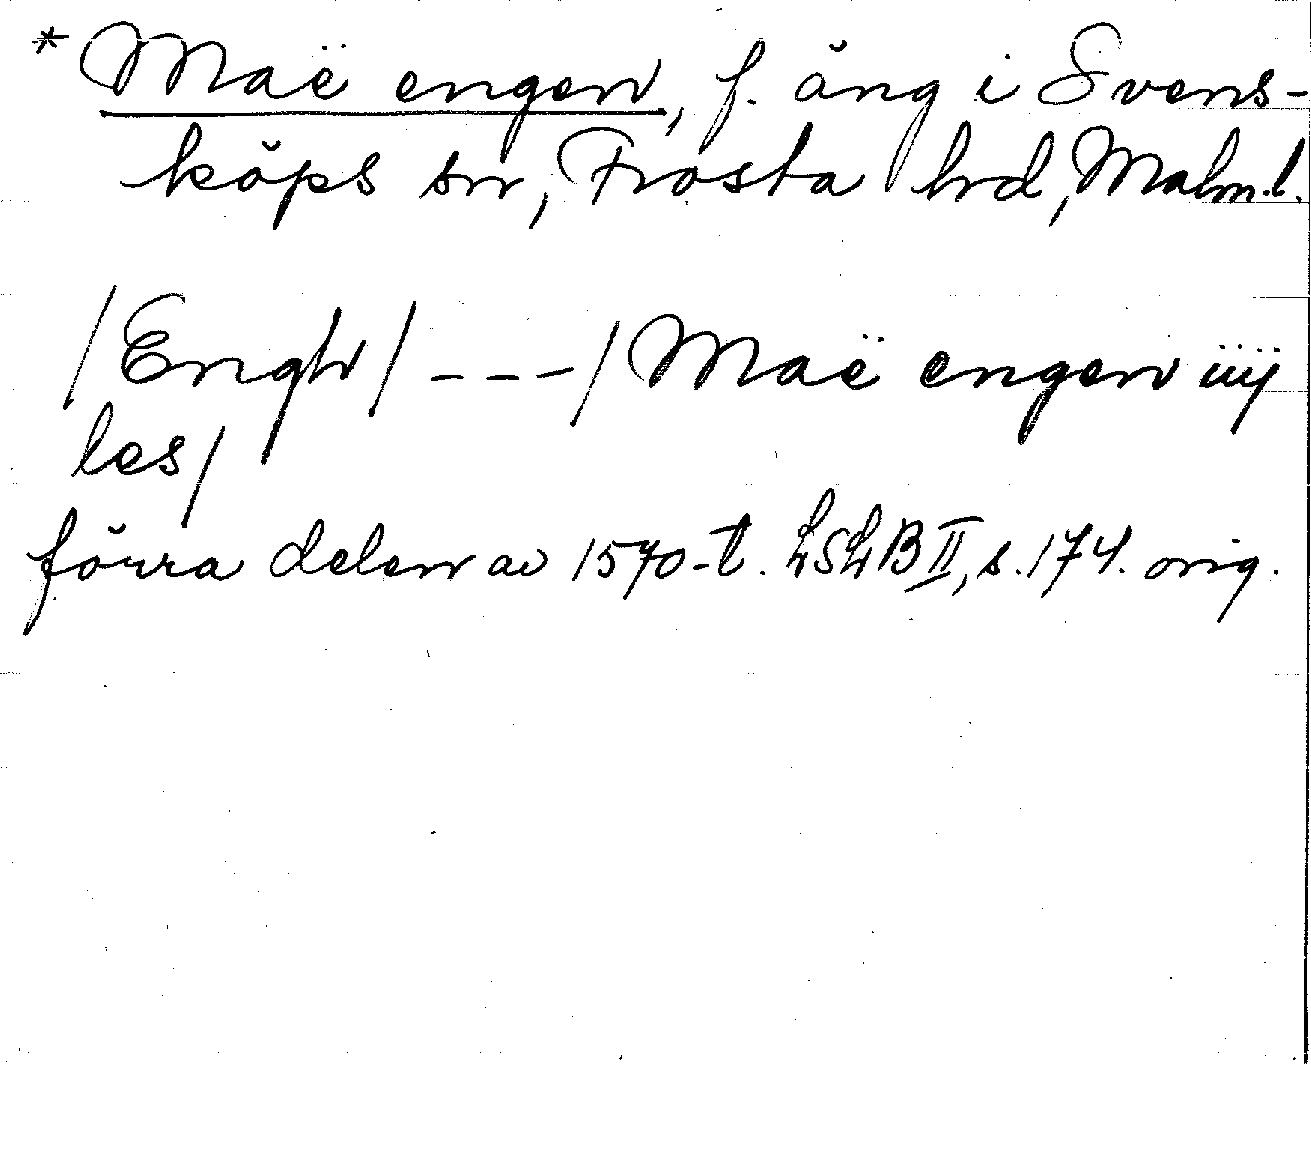 * Maë engen, f. äng i Svens-
köps sn, Frosta hd, Malm.l.
/Engh/ ---/ Maë engen iiij
les/
förra delen av 1570-t. LSLB II, s. 174. orig.